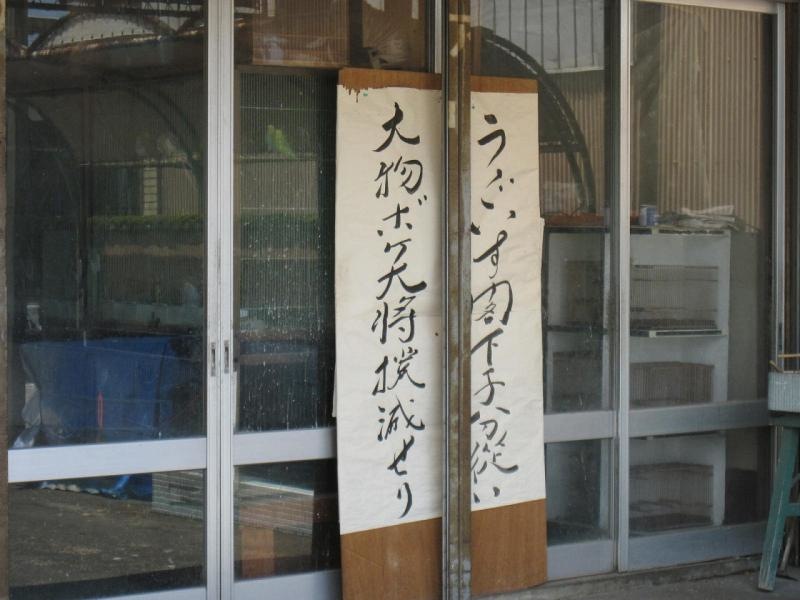 うぐいす閣下子分従い
大物ボケ大将撹滅せり